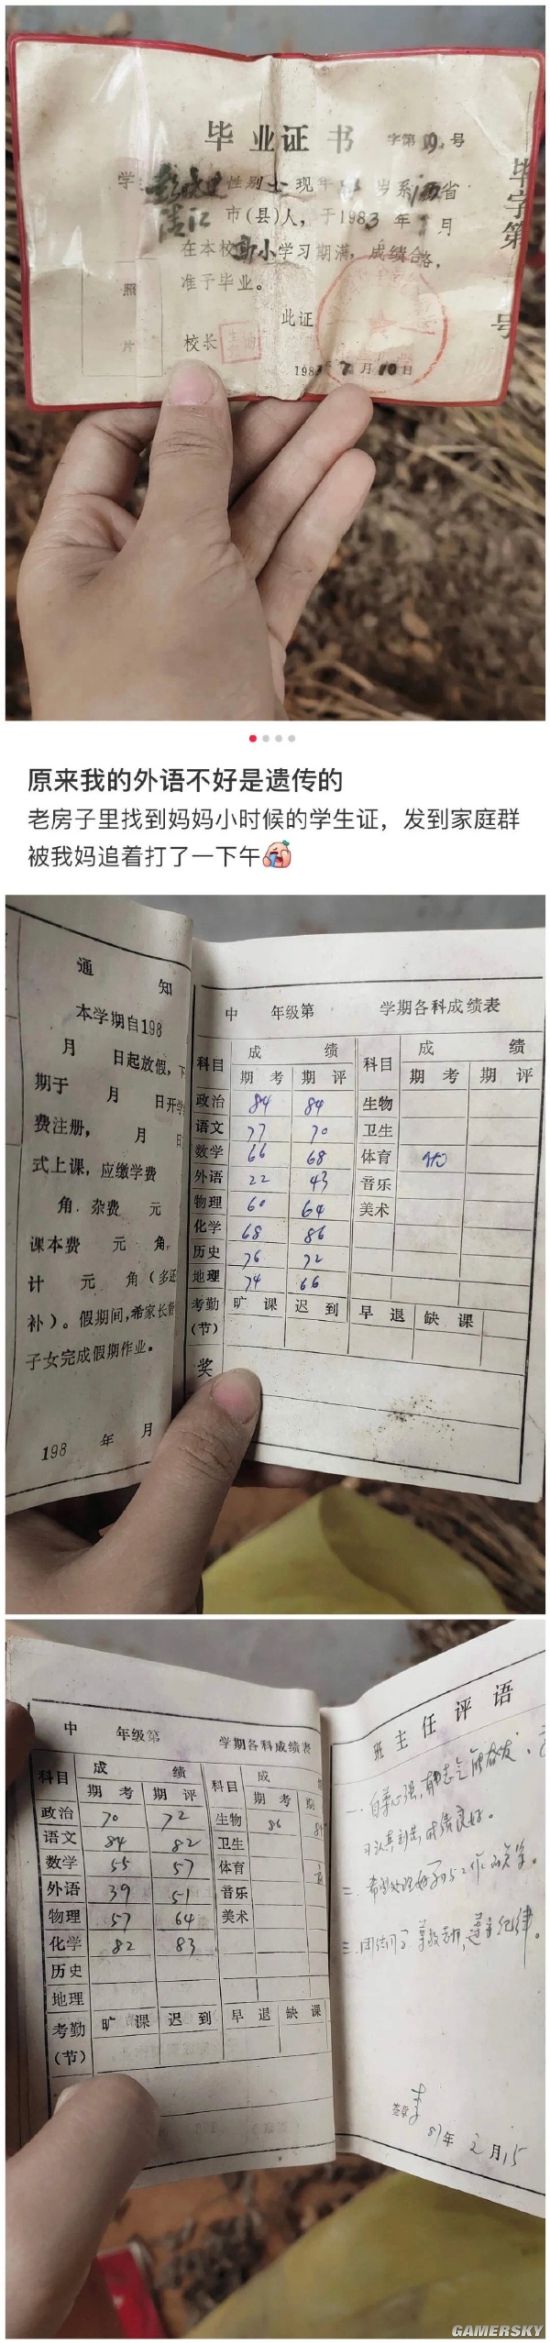 毕业证书 字第 号
学 性别 现年 岁系江西省
市(县)人，于1983年 月
在本校高小学习期满，成绩合格，
准予毕业。
此证
照
片
校长
1983年7月10日
毕字第
号
原来我的外语不好是遗传的
老房子里找到妈妈小时候的学生证，发到家庭群
被我妈追着打了一下午
通 知
本学期自198
月 日起放假，下
期于 月 日开学
费注册， 月 日
式上课，应缴学费
角，杂费 元
课本费 元 角，
计 元 角（多还
补）。假期间，希家长督
子女完成假期作业。
198 年 月
中 年级第 学期各科成绩表
科目 成 绩 科目 成 绩
期考 期评 期考 期评
政治 84 84 生物
语文 77 70 卫生
数学 66 68 体育
外语 22 43 音乐
物理 60 64 美术
化学 68 86
历史 76 72
地理 74 66
考勤(节) 旷课 迟到 早退 缺课
奖
中 年级第 学期各科成绩表
科目 成 绩 科目 成 绩
期考 期评 期考 期
政治 70 72 生物 86
语文 84 82 卫生
数学 55 57 体育
外语 39 51 音乐
物理 57 64 美术
化学 82 83
历史
地理
考勤(节) 旷课 迟到 早退 缺课
班主任评语
一、自尊心强，
成绩良好。
二、希望处理好 工作
三、团结同学 遵守纪律。
签章 李
87年2月15
GAMERSKY